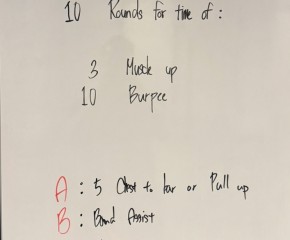 10 Rounds for time of :
3 Muscle up
10 Burpee
A : 5 Chest to bar or Pull up
B : Band Assist